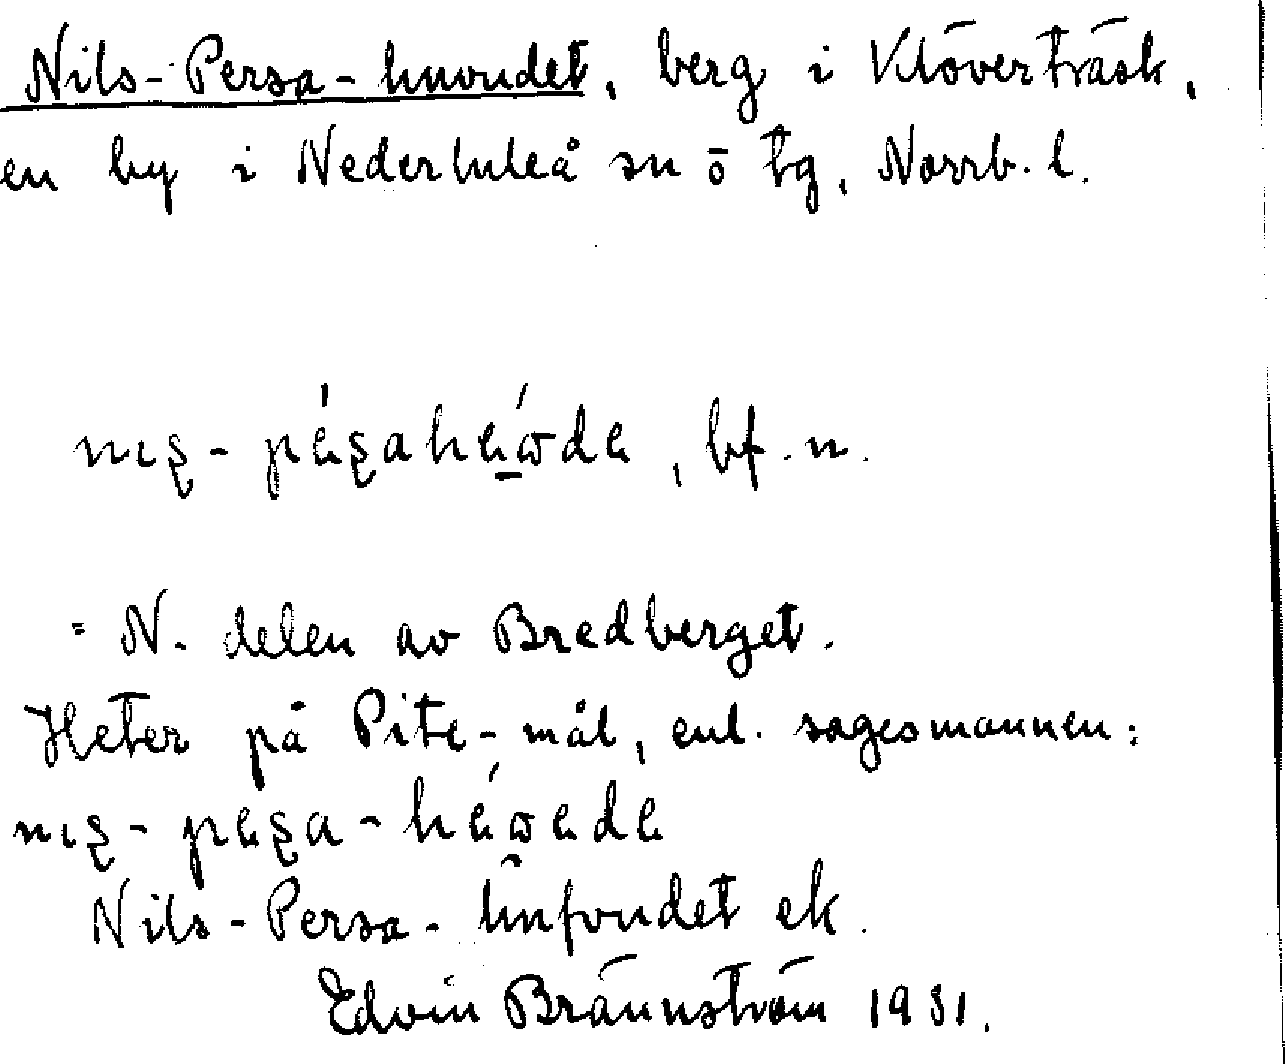 Nils-Persa-huvudet, berg i Klöverträsk,
en by i Nederluleå sn o tg, Norrb. l.
, bf. n.
= N. delen av Bredberget.
Heter på Pite-mål, enl. sagesmannen:
Nils-Persa-hufvudet ek.
Edvin Brännström 1931.